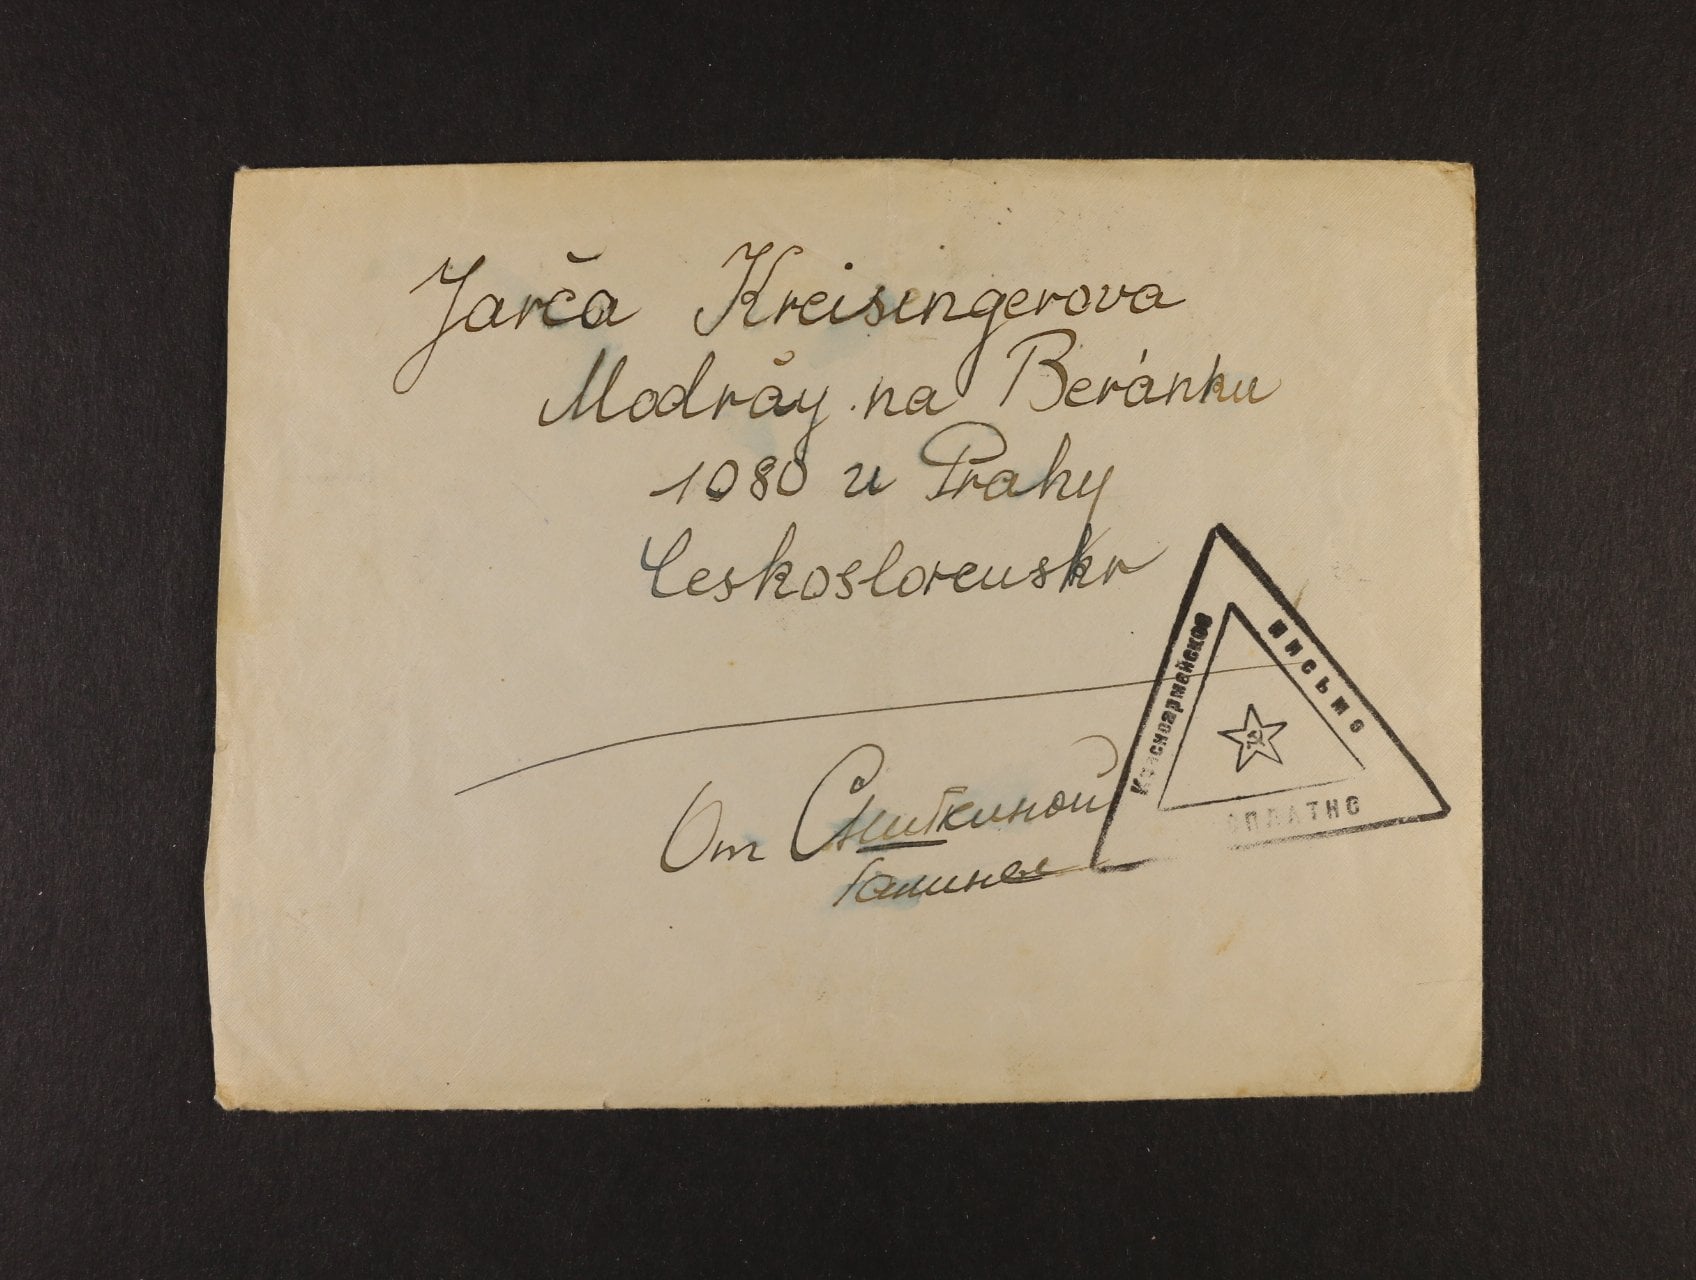 Jarča Kreisingerova
Modrǎy na Beránku
1080 u Prahy
Československ
Красноармейское
письмо
ПЛАТНО
От Сниткиной
Галины